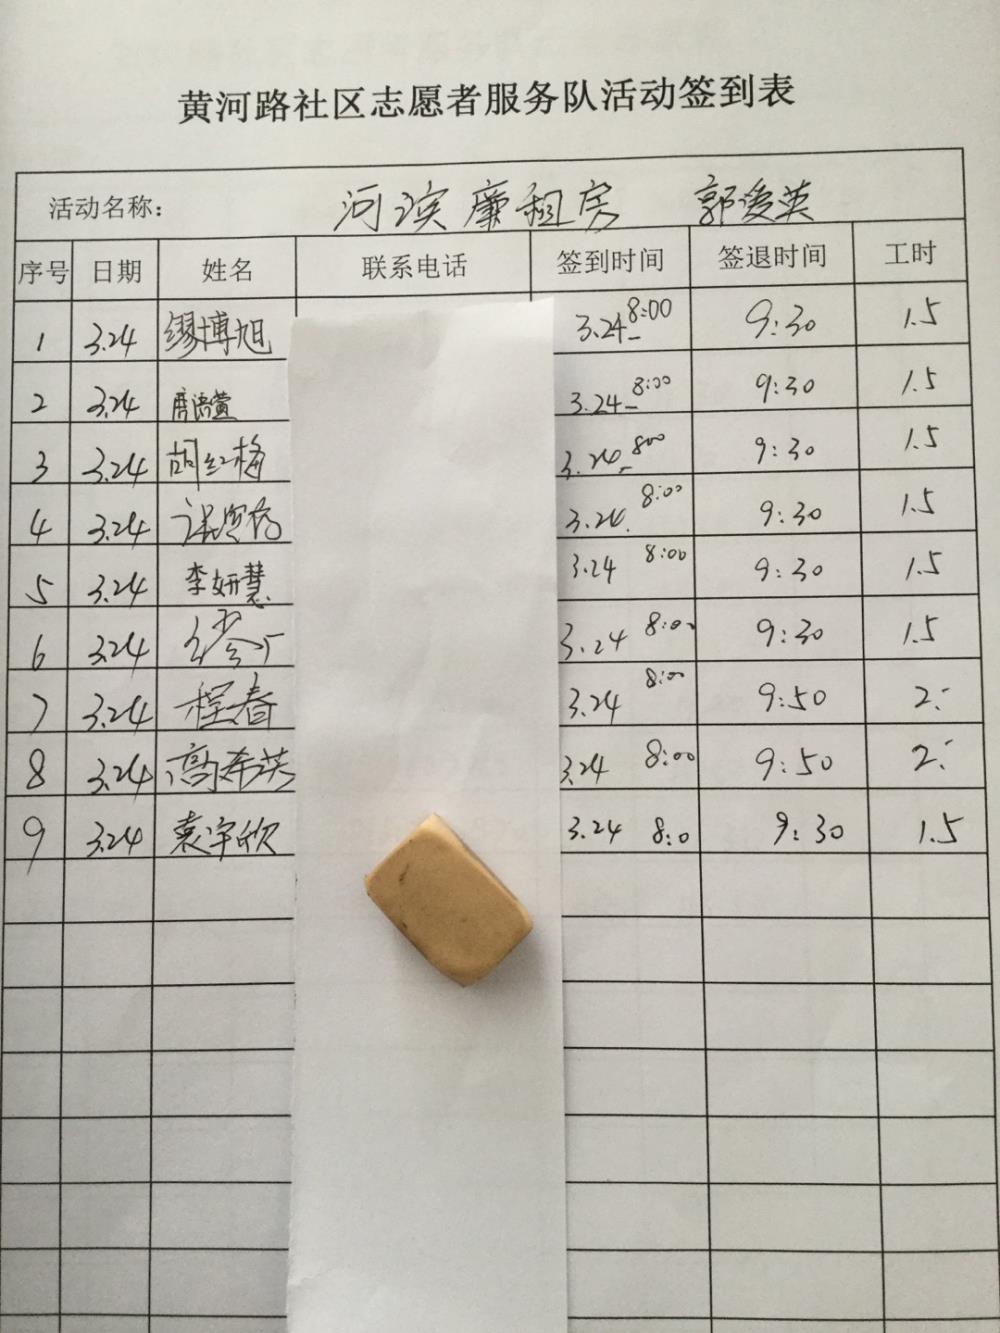 黄河路社区志愿者服务队活动签到表
活动名称： 河滨廉租房 郭俊英
序号 日期 姓名 联系电话 签到时间 签退时间 工时
1 3.24 缪博旭 3.24 8:00 9:30 1.5
2 3.24 3.24 8:00 9:30 1.5
3 3.24 胡红梅 3.24 800 9:30 1.5
4 3.24 3.24 8:00 9:30 1.5
5 3.24 李妍慧 3.24 8:00 9:30 1.5
6 3.24 3.24 8:00 9:30 1.5
7 3.24 程春 3.24 8:00 9:50 2:
8 3.24 高希英 3.24 8:00 9:50 2:
9 3.24 袁宇欣 3.24 8:0 9:30 1.5